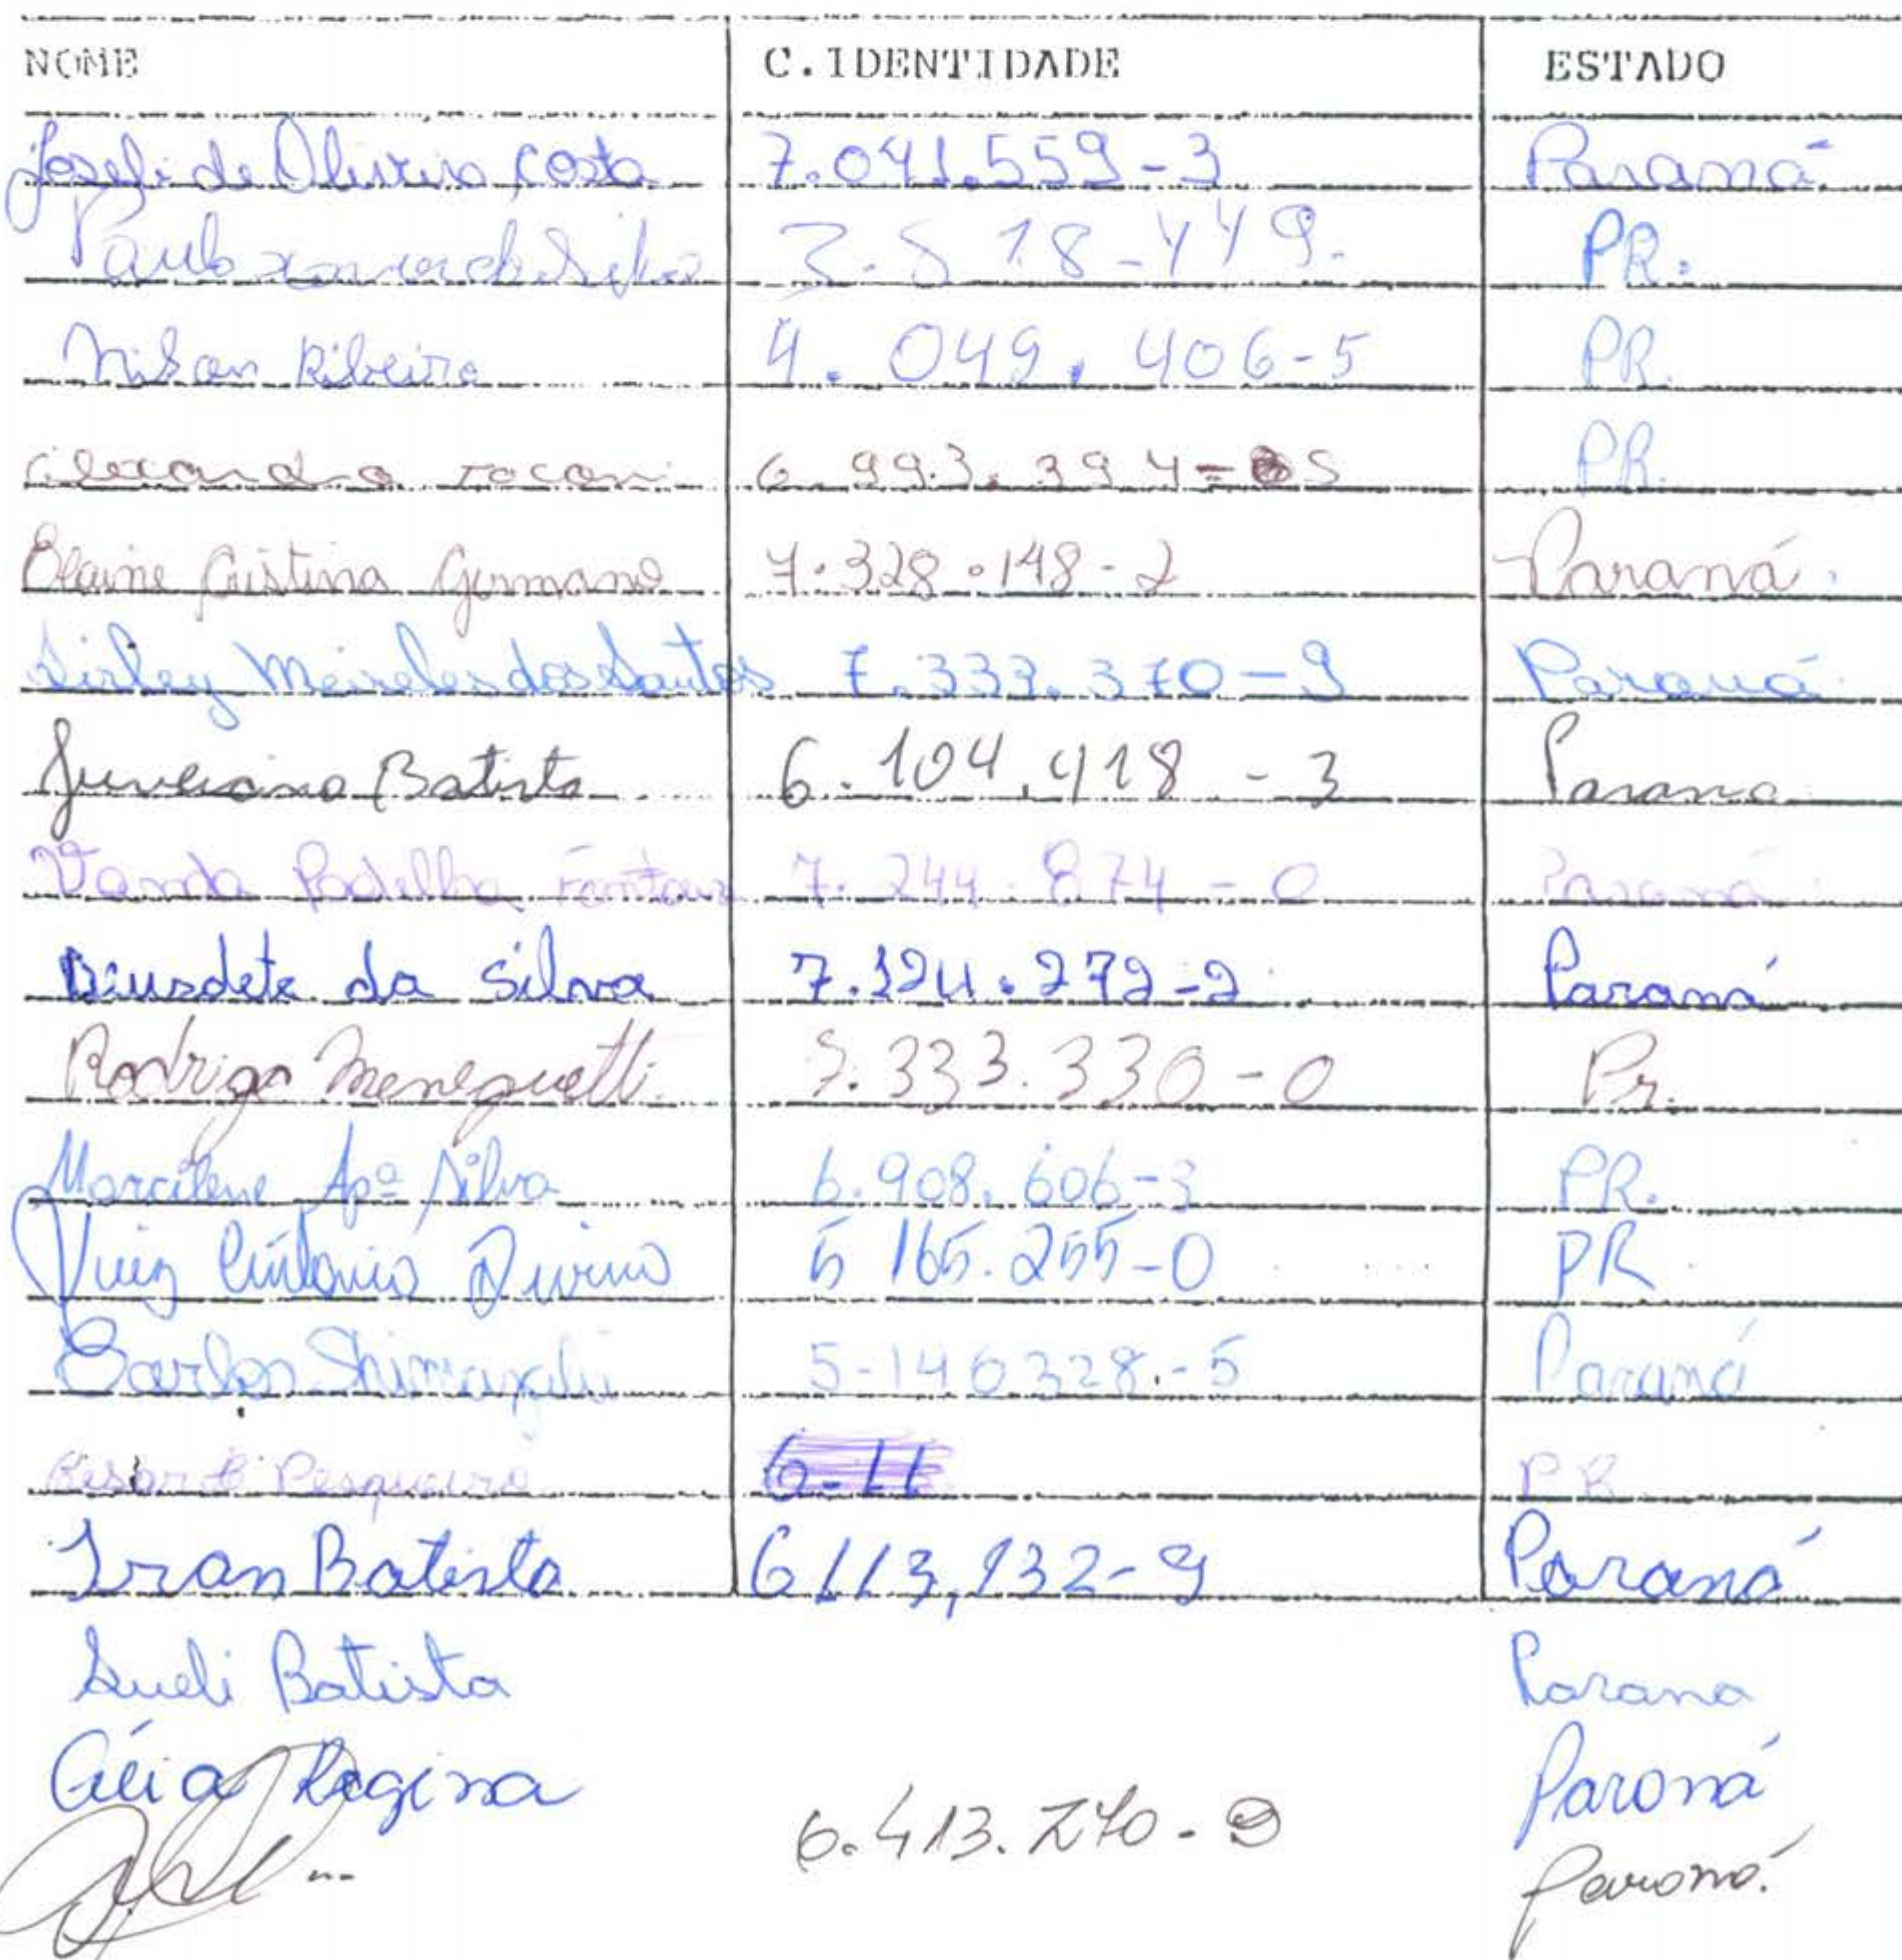 NOME C.IDENTIDADE ESTADO
Josefi de Oliveira Costa 7.041.559-3 Paraná
Paulo da Silva 3.518-449. PR.
Nilson Ribeiro 4.049.406-5 PR.
6.993.394-5 PR.
Elaine Cristina Germano 7.328.148-2 Paraná.
Sirley Meireles dos Santos 7.333.370-9 Paraná
Juveliano Batista 6.104.418-3 Parana
Vanda Padilha 7.244.874-0 Paraná
Deusdete da Silva 7.124.272-2 Paraná
Rodrigo Meneguetti 7.333.330-0 Pr.
Marcilene Apª Silva 6.908.606-3 PR.
Luiz Antonio Divino 5 165.255-0 PR.
Carlos Shimazaki 5-140328.-5 Paraná
Pesqueira 6-11 PR
Iran Batista 6113,132-9 Paraná
Sueli Batista Parana
Céia Regina Paraná
6.413.270-9 Paraná.